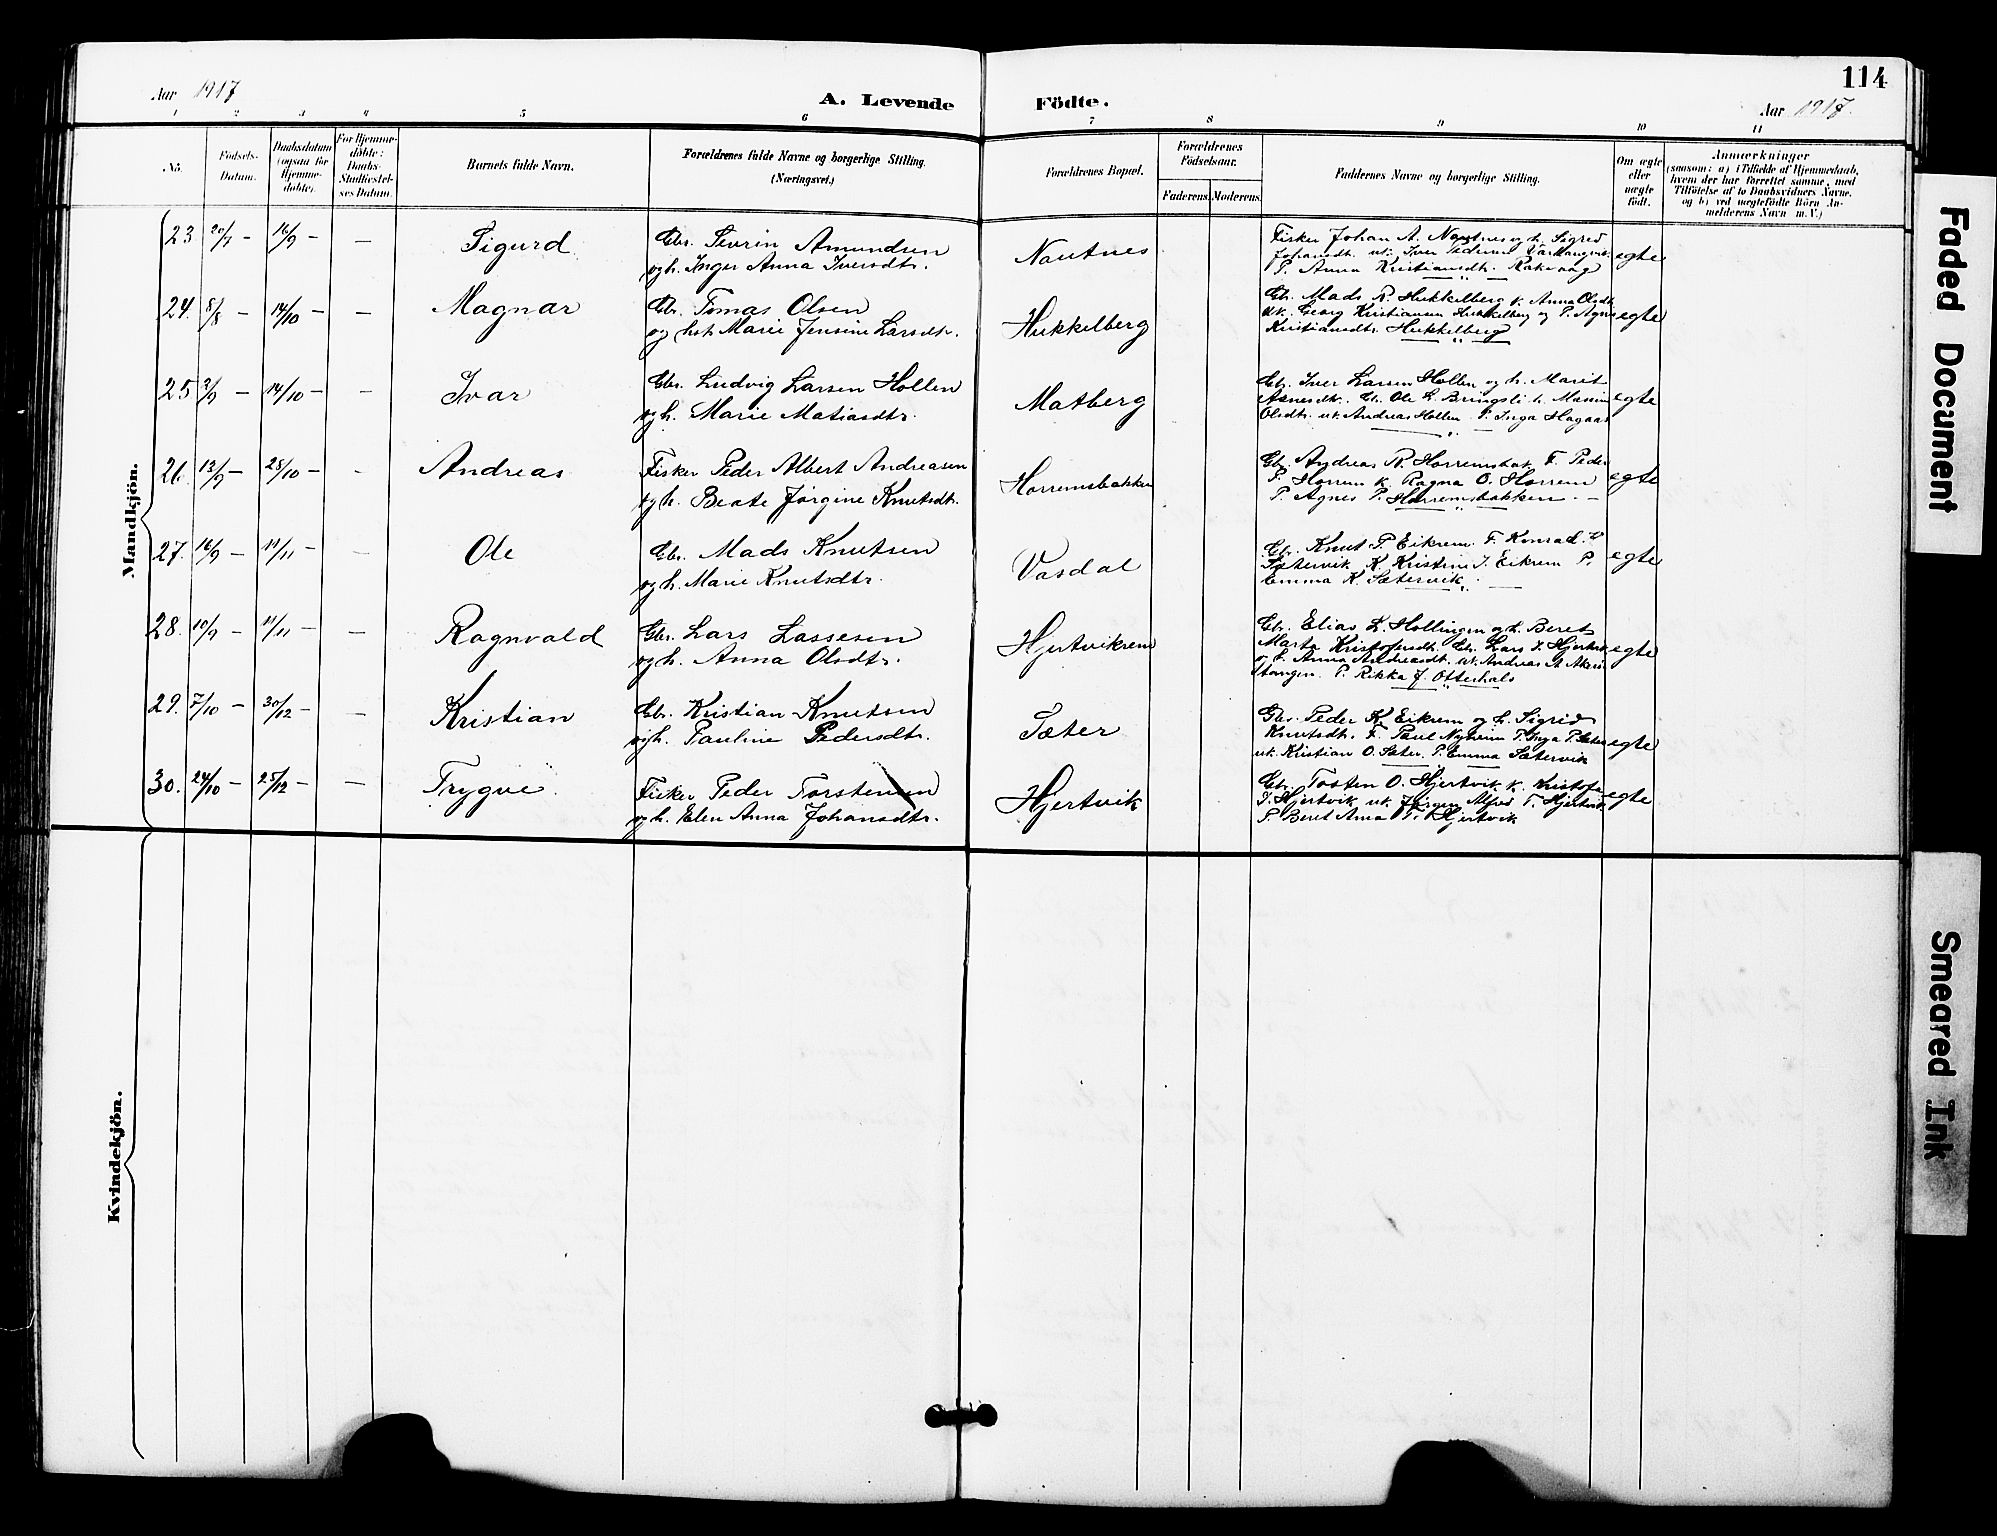 114
Aar 1917
A. Levende Födte.
Aar 1917.
1 2 3 4 5 6 7 8 9 10 11
No.
Födsels-
Datum.
Daabsdatum
(ogsaa for
Hjemme-
døbte).
For Hjemme-
døbte:
Daabs-
Stadfæstel-
ses Datum.
Barnets fulde Navn.
Forældrenes fulde Navne og borgerlige Stilling.
(Næringsvei.)
Forældrenes Bopæl.
Forældrenes
Födselsaar.
Faderens. Moderens.
Faddernes Navne og borgerlige Stilling.
Om ægte
eller
uægte
født.
Anmærkninger
(saasom: a) i Tilfælde af Hjemmedaab,
hvem der har forrettet samme, med
Tilföielse af to Daabsvidners Navne.
og b) ved uægtefödte Börn An-
melderens Navn m. V.)
Mandkjön.
23 20/7 - 16/9 - - Sigurd
Gbr. Sevrin Amundsen
og h. Inger Anna Iversdtr.
Nautnes
Fisker Johan A. Nautnes og h. Sigred
Johansdt. uk. Iver Pedersen
P. Anna Kristiansdt. Rakvaag
egte
24. 8/8 - 14/10 - - Magnar
Gbr. Tomas Olsen
og hst. Marie Jensine Larsdtr.
Hukkelberg
Gb. Mads P. Hukkelberg k. Anna Olsdt.
uk. Georg Kristiansen Hukkelberg og P. Agnes
Kristiansdtr. Hukkelberg
egte
25 3/9 - 14/10 - - Ivar
Gbr. Ludvig Larsen Hollen
og h. Marie Matiasdtr.
Matberg
Gb. Iver Larsen Hollen og h. Marit
Gb. Ole L. Bringsli h.
Olsdtr. uk. Andreas Hollen P. Inga Hagaas
egte
26. 13/9 - 28/10 - - Andreas
Fisker Peder Albert Andreasen
og h. Beate Jørgine Knutsdt.
Horremsbakken
Gb. Andreas P. Horremsbak. F. Peder
P. Horrem K. Ragna O. Horrem
P. Agnes P. Horremsbakken. -
egte
27. 16/9 - 11/11 - - Ole
Gbr. Mads Knutsen
og h. Marie Knutsdtr.
Vasdal
Gb. Knut P. Eikrem. F. Konrad
Sætervik K. Kristine J. Eikrem P.
Emma K. Sætervik.
egte
28. 10/9 - 11/11 - - Ragnvald
Gbr. Lars Lassesen
og h. Anna Olsdtr.
Hjertvikrem
Gb. Elias L. Hollingen og h. Beret
Marta Kristofersdt. Gb. Lars
Anna Andreasdt. uk. Andreas A.
P. Rikka J. Otterhals
egte
29. 7/10 - 30/12 - - Kristian
Gbr. Kristian Knutsen
og h. Pauline Pedersdtr.
Sæter
Gbr. Peder K. Eikrem og h. Sigrid
Knutsdt. F. Paul Nyheim P. Inga P. Sæter
uk. Kristian O. Sæter. P. Emma Sætervik
egte
30. 24/10 - 25/12 - - Trygve.
Fisker Peder Torstensen
og h. Elen Anna Johansdtr.
Hjertvik
Gb. Tosten O. Hjertvik k. Kristofa
J. Hjertvik uk. Jørgen Alfred T. Hjertvik
P. Beret Anna T. Hjertvik
egte
Kvindekjön.
Faded Document
Smeared Ink